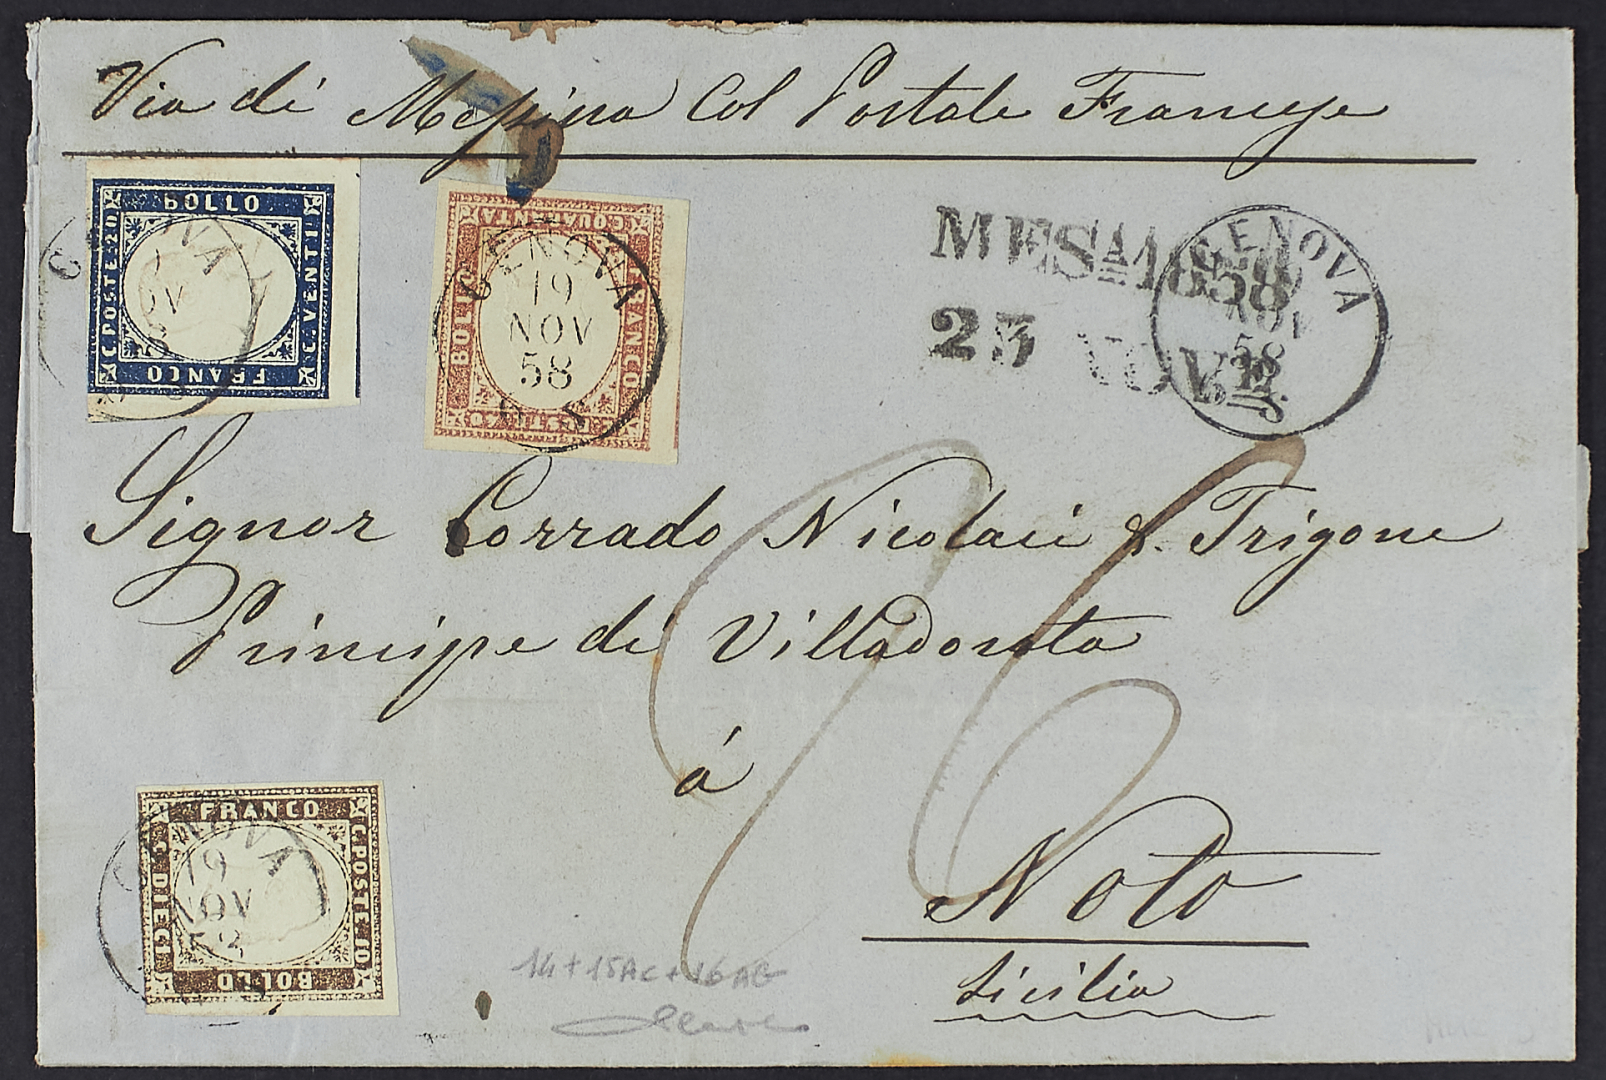 Via di Messina Col Postale Francese
BOLLO
C. POSTE 20
C. VENTI
FRANCO
GENOVA
C. QUARANTA
BOLLO
FRANCO
C. POSTE 40
GENOVA
19
NOV
58
MES 1858
25 NOV
GENOVA
NOV
58
Signor Corrado Nicolaci f. Trigone
Principe di Villadorata
á
Noto
Sicilia
26
FRANCO
C. DIECI
C. POSTE 10
BOLLO
GENOVA
19
NOV
58
14+15Ac+16AB